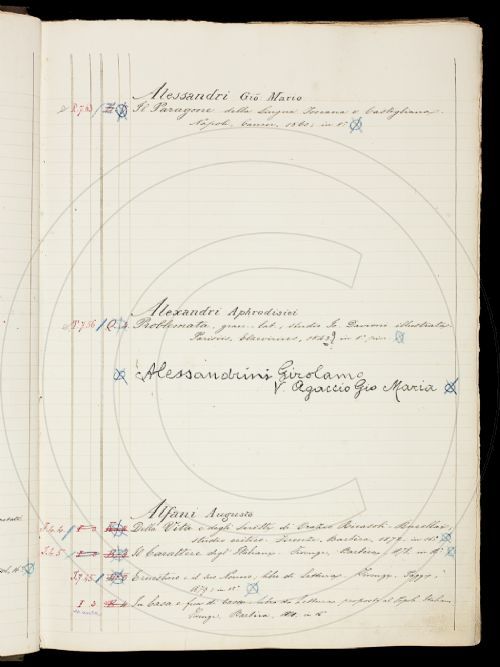 Alessandri Gio. Mario
P.7.43 / Il Paragone della Lingua Toscana e Castigliana.
Napoli, Cancer, 1560; in 8°
Alexandri Aphrodisiei
P.7.56 / Problemata, graec. lat., studio Io. Davioni illustrata
Parisiis, 
Alessandrini Girolamo
V. Agaccio Gio Maria
Alfani Augusto
Della Vita e degli scritti di Orazio Ricasoli Rucellai,
studio critico. Firenze, Barbèra, 1872. in 16°
Il Carattere degl' Italiani. Firenze, Barbèra, in 16°
Ernestino e il suo Nonno, libro di lettura. Firenze, Paggi,
In Casa e fuor di casa. Libro di Lettura proposto al Popolo Italiano
Firenze, Barbèra, in 16